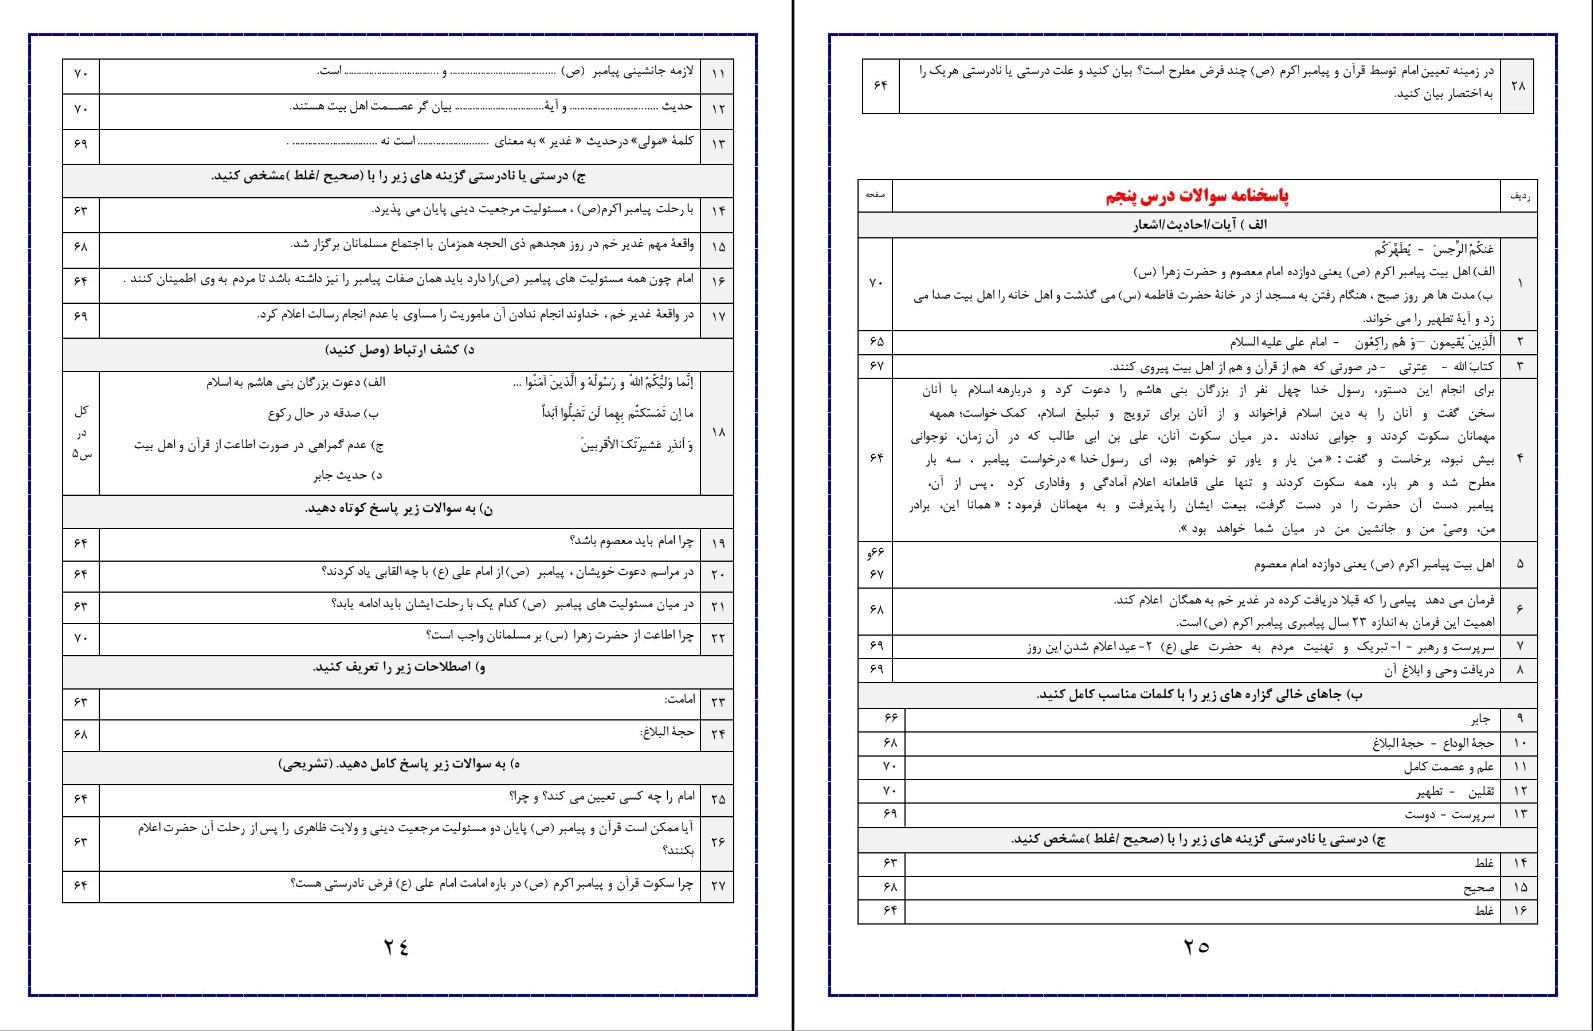 ۱۱ لازمه جانشینی پیامبر (ص) ........................................ و .................................... است. ۷۰
۱۲ حدیث .................................. و آیۀ.................................. بیان گر عصـــمت اهل بیت هستند. ۷۰
۱۳ کلمۀ «مولی» درحدیث « غدیر » به معنای ........................... است نه ................................ . ۶۹
ج) درستی یا نادرستی گزینه های زیر را با (صحیح /غلط )مشخص کنید.
۱۴ با رحلت پیامبر اکرم(ص) ، مسئولیت مرجعیت دینی پایان می پذیرد. ۶۳
۱۵ واقعۀ مهم غدیر خم در روز هجدهم ذی الحجه همزمان با اجتماع مسلمانان برگزار شد. ۶۸
۱۶ امام چون همه مسئولیت های پیامبر (ص)را دارد باید همان صفات پیامبر را نیز داشته باشد تا مردم به وی اطمینان کنند . ۶۴
۱۷ در واقعۀ غدیر خم ، خداوند انجام ندادن آن ماموریت را مساوی با عدم انجام رسالت اعلام کرد. ۶۹
د) کشف ارتباط (وصل کنید)
إنَّما وَلیُّکُمُ اللهُ و رَسُولُهُ و الَّذینَ آمَنُوا ... الف) دعوت بزرگان بنی هاشم به اسلام
ما إن تَمَسَکتُم بِهِما لَن تَضِلُّوا أبَداً ب) صدقه در حال رکوع
۱۸ وَ أنذِر عَشیرَتَکَ الأقرَبینَ ج) عدم گمراهی در صورت اطاعت از قرآن و اهل بیت
د) حدیث جابر
کل
در
س۵
ن) به سوالات زیر پاسخ کوتاه دهید.
۱۹ چرا امام باید معصوم باشد؟ ۶۴
۲۰ در مراسم دعوت خویشان ، پیامبر (ص) از امام علی (ع) با چه القابی یاد کردند؟ ۶۴
۲۱ در میان مسئولیت های پیامبر (ص) کدام یک با رحلت ایشان باید ادامه یابد؟ ۶۳
۲۲ چرا اطاعت از حضرت زهرا (س) بر مسلمانان واجب است؟ ۷۰
و) اصطلاحات زیر را تعریف کنید.
۲۳ امامت: ۶۳
۲۴ حجۀ البلاغ: ۶۸
ه) به سوالات زیر پاسخ کامل دهید. (تشریحی)
۲۵ امام را چه کسی تعیین می کند؟ و چرا؟ ۶۴
۲۶ آیا ممکن است قرآن و پیامبر (ص) پایان دو مسئولیت مرجعیت دینی و ولایت ظاهری را پس از رحلت آن حضرت اعلام
بکنند؟ ۶۳
۲۷ چرا سکوت قرآن و پیامبر اکرم (ص) در باره امامت امام علی (ع) فرض نادرستی هست؟ ۶۴
۲۴
۲۸ در زمینه تعیین امام توسط قرآن و پیامبر اکرم (ص) چند فرض مطرح است؟ بیان کنید و علت درستی یا نادرستی هریک را
به اختصار بیان کنید. ۶۴
ردیف پاسخنامه سوالات درس پنجم صفحه
الف ) آیات/احادیث/اشعار
۱ عَنکُمُ الرِّجسَ - یُطَهِّرَکُم
الف) اهل بیت پیامبر اکرم (ص) یعنی دوازده امام معصوم و حضرت زهرا (س)
ب) مدت ها هر روز صبح ، هنگام رفتن به مسجد از در خانۀ حضرت فاطمه (س) می گذشت و اهل خانه را اهل بیت صدا می
زد و آیۀ تطهیر را می خواند. ۷۰
۲ الَّذینَ یُقیمون –وَ هُم راکِعُون - امام علی علیه السلام ۶۵
۳ کتابَ الله - عِترتی - در صورتی که هم از قرآن و هم از اهل بیت پیروی کنند. ۶۷
برای انجام این دستور، رسول خدا چهل نفر از بزرگان بنی هاشم را دعوت کرد و دربارهه اسلام با آنان
سخن گفت و آنان را به دین اسلام فراخواند و از آنان برای ترویج و تبلیغ اسلام، کمک خواست؛ همهه
مهمانان سکوت کردند و جوابی ندادند .در میان سکوت آنان، علی بن ابی طالب که در آن زمان، نوجوانی
۴ بیش نبود، برخاست و گفت: «من یار و یاور تو خواهم بود، ای رسول خدا »درخواست پیامبر ، سه بار ۶۴
مطرح شد و هر بار، همه سکوت کردند و تنها علی قاطعانه اعلام آمادگی و وفاداری کرد .پس از آن،
پیامبر دست آن حضرت را در دست گرفت، بیعت ایشان را پذیرفت و به مهمانان فرمود: «همانا این، برادر
من، وصیّ من و جانشین من در میان شما خواهد بود ».
۵ اهل بیت پیامبر اکرم (ص) یعنی دوازده امام معصوم ۶۶و
۶۷
۶ فرمان می دهد پیامی را که قبلا دریافت کرده در غدیر خم به همگان اعلام کند.
اهمیت این فرمان به اندازه ۲۳ سال پیامبری پیامبر اکرم (ص) است. ۶۸
۷ سرپرست و رهبر - ۱- تبریک و تهنیت مردم به حضرت علی (ع) ۲- عید اعلام شدن این روز ۶۹
۸ دریافت وحی و ابلاغ آن ۶۹
ب) جاهای خالی گزاره های زیر را با کلمات مناسب کامل کنید.
۹ جابر ۶۶
۱۰ حجۀ الوداع - حجۀ البلاغ ۶۸
۱۱ علم و عصمت کامل ۷۰
۱۲ ثقلین - تطهیر ۷۰
۱۳ سرپرست - دوست ۶۹
ج) درستی یا نادرستی گزینه های زیر را با (صحیح /غلط )مشخص کنید.
۱۴ غلط ۶۳
۱۵ صحیح ۶۸
۱۶ غلط ۶۴
۲۵